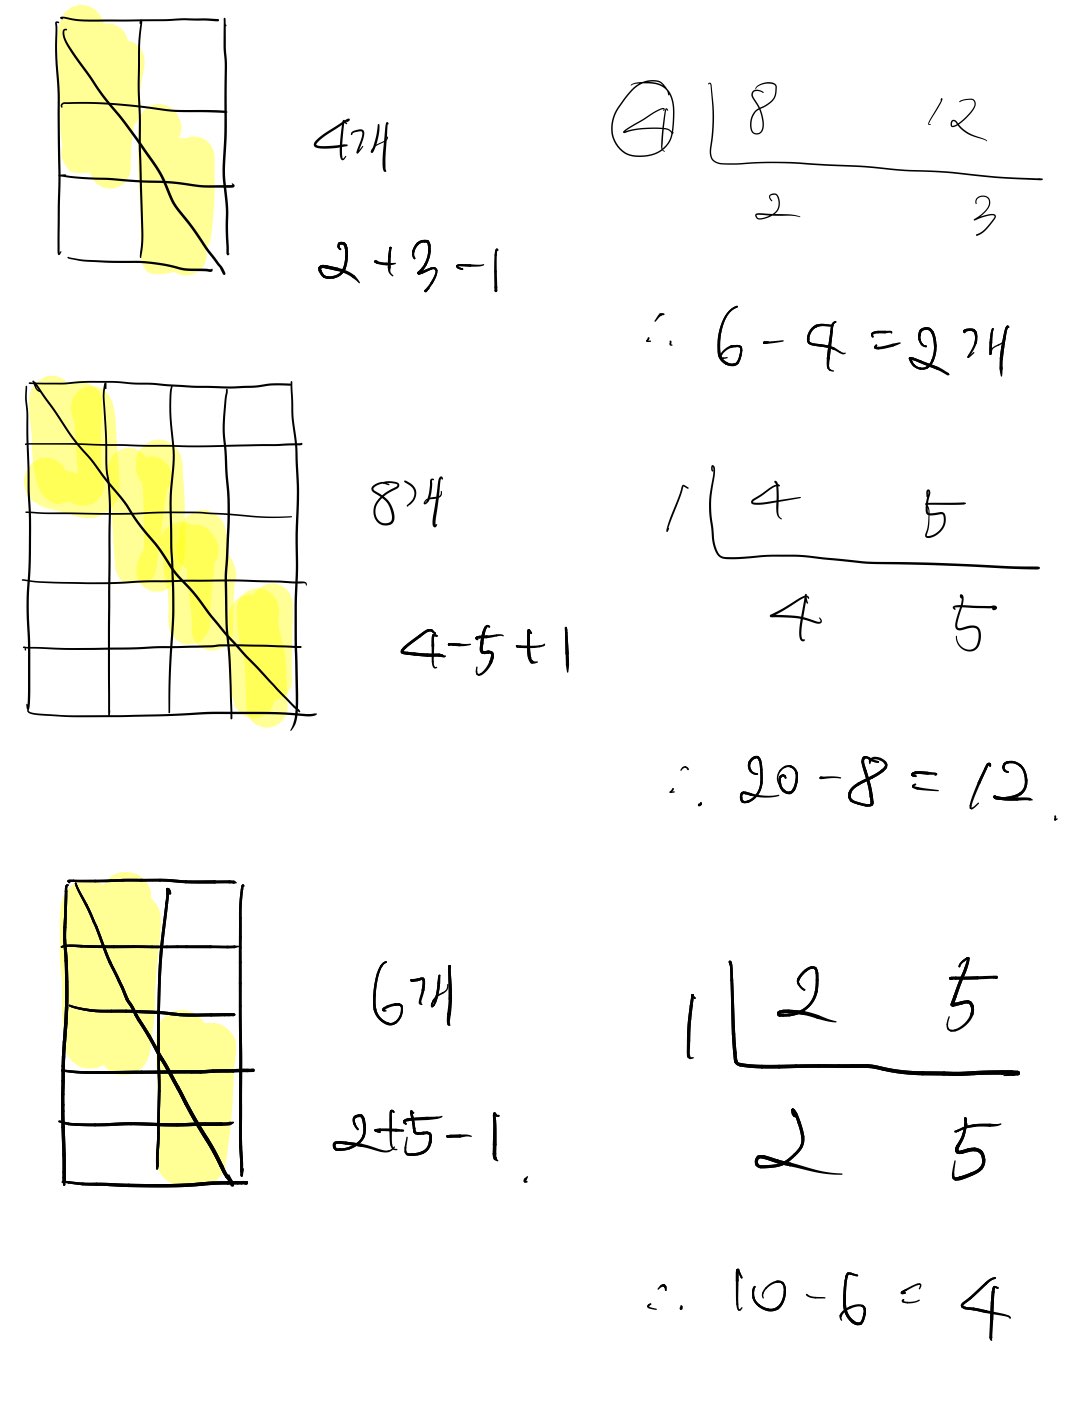 4개
2+3-1
4 8 12
2 3
∴ 6-4=2개
8개
4-5+1
1 4 5
4 5
∴ 20-8=12.
6개
2+5-1.
1 2 5
2 5
∴ 10-6=4